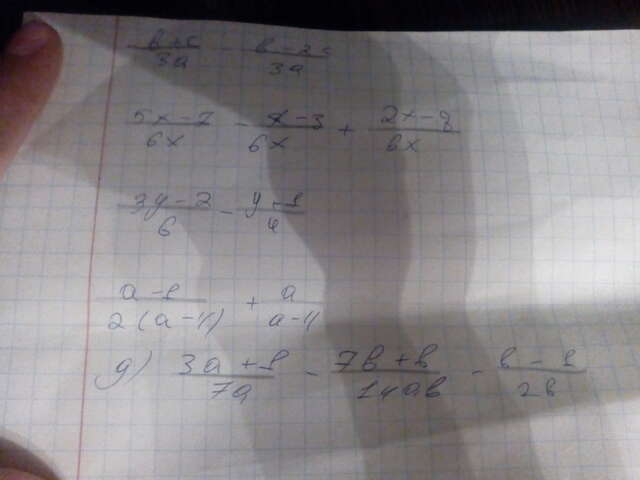 (b+c)/3a - (b-2c)/3a
(5x-7)/6x - (x-3)/6x + (2x-8)/6x
(3y-2)/6 - (y-1)/4
(a-1)/2(a-4) + a/(a-4)
д) (3a+1)/7a - (7b+b)/14ab - (b-1)/2b